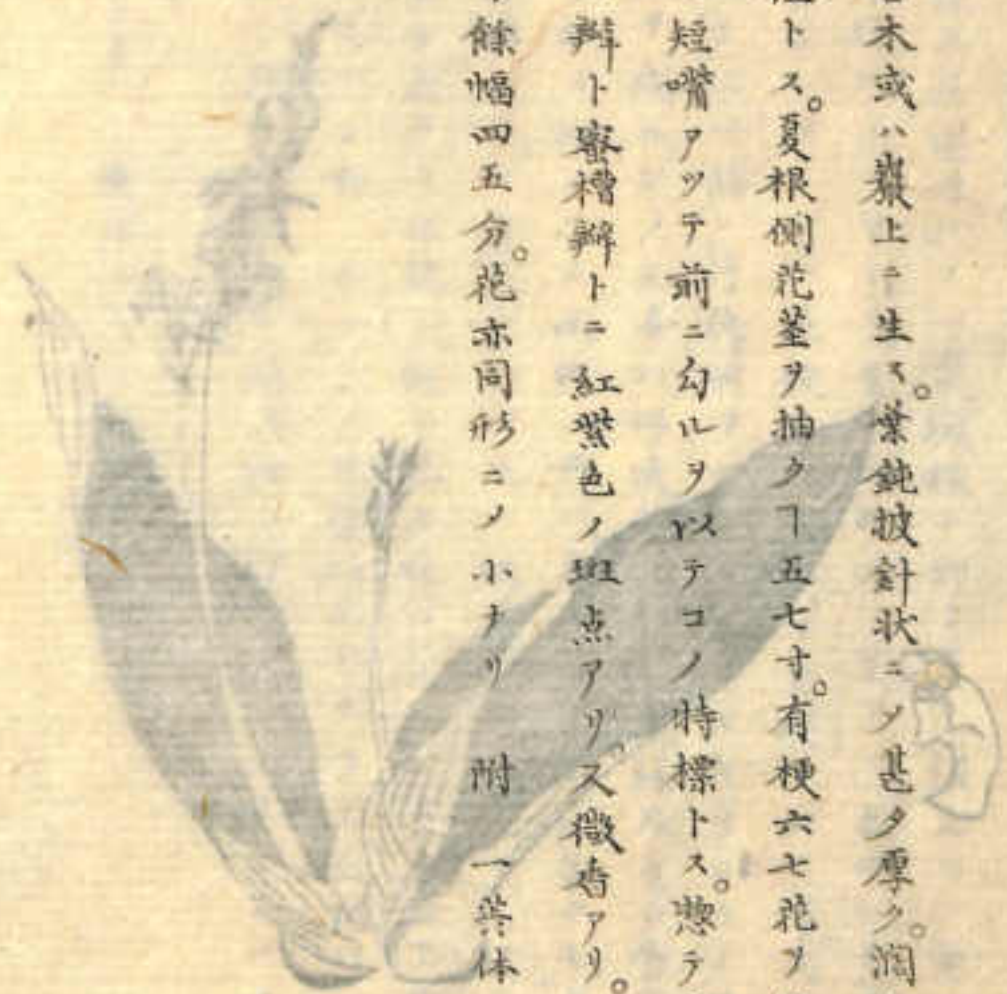 木或ハ巖上ニ生ス。葉鈍披針狀ニノ甚タ厚ク。濶
トス。夏根側花茎ヲ抽クヿ五七寸。有梗六七花ツ
短嘴アツテ前ニ勾ルヲ以テコノ特標トス。惣テ
辨ト蜜槽辨トニ紅紫色ノ斑点アリ。又微香アリ。
餘幅四五分。花亦同形ニノ小ナリ 附 一葉体